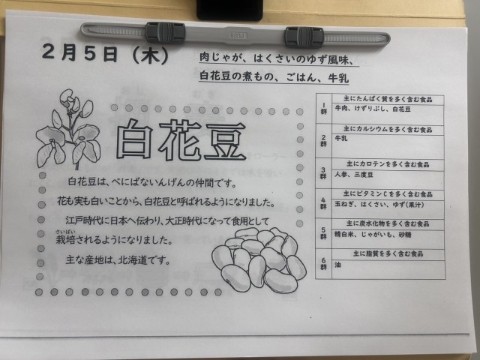 2月5日（木）
肉じゃが、はくさいのゆず風味、
白花豆の煮もの、ごはん、牛乳
白花豆
白花豆は、べにばないんげんの仲間です。
花も実も白いことから、白花豆と呼ばれるようになりました。
江戸時代に日本へ伝わり、大正時代になって食用として
さいばい
栽培されるようになりました。
主な産地は、北海道です。
1群
主にたんぱく質を多く含む食品
牛肉、けずりぶし、白花豆
2群
主にカルシウムを多く含む食品
牛乳
3群
主にカロテンを多く含む食品
人参、三度豆
4群
主にビタミンCを多く含む食品
玉ねぎ、はくさい、ゆず(果汁)
5群
主に炭水化物を多く含む食品
精白米、じゃがいも、砂糖
6群
主に脂質を多く含む食品
油